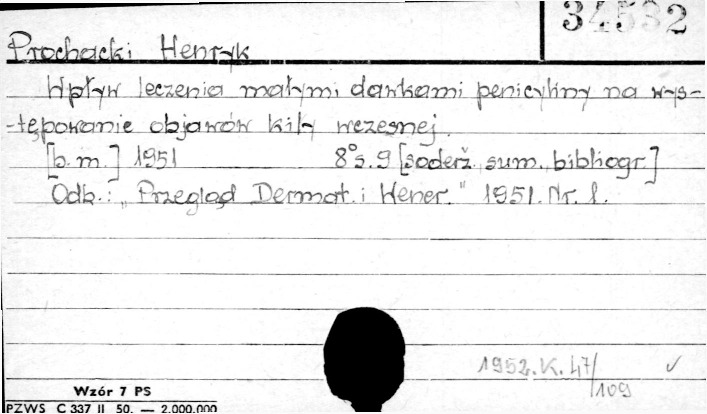 34532
Prochacki Henryk
Wpływ leczenia małymi dawkami penicyliny na wys-
-tępowanie objawów kiły wczesnej.
[b.m.] 1951 8° s. 9 [soderż. sum., bibliogr.]
Odb.: „Przegląd Dermat. i Wener." 1951. Nr. 1.
1952. K. 47/109 ✓
Wzór 7 PS
PZWS C 337 II 50. — 2.000.000